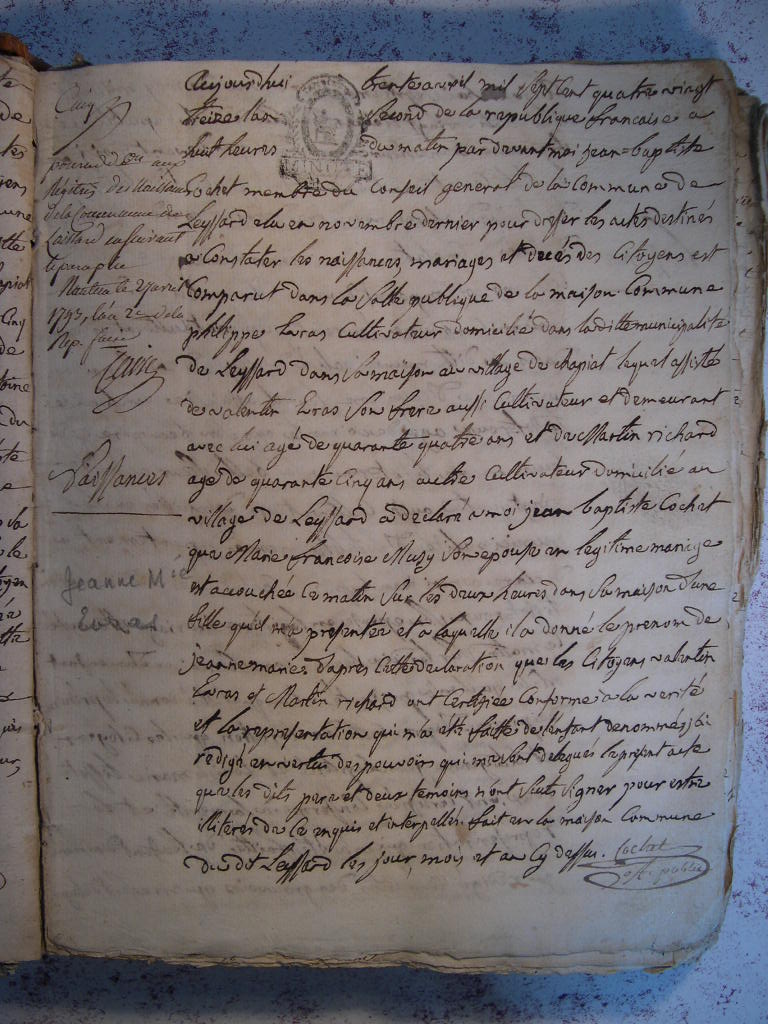 Cinq
premier des aux
registres des Naissances
de la Commune de
Laissard en suivant
le paraphe
Nantua le 27 avril
1793, l'an 2e de la
Rep. fr.
Naissances
Jeanne Mie
Evras
Aujourdhui trente avril mil Sept Cent quatre vingt
treize l'an Second de la republique francaise a
huit heures du matin par devant moi jean=baptiste
Cochet membre du Conseil general de la Commune de
Leyssard elu en novembre dernier pour dresser les actes destinés
a Constater les naissances, mariages et decés des Citoyens est
Comparut dans la Salle publique de la maison Commune
philippe Evras Cultivateur domicilié dans la ditte municipalité
de Leyssard dans sa maison au village de chapiat lequel assisté
de valentin Evras Son frere aussi Cultivateur et demeurant
avec lui agé de quarante quatre ans et de Martin richard
agé de quarante Cinq ans autre Cultivateur domicilié au
village de Leyssard a declaré a moi jean baptiste Cochet
que Marie francoise Muzy Son epouse en legitime mariage
est accouchée Ce matin Sur les deux heures dans Sa maison d'une
fille qu'il m'a presentée et a laquelle il a donné le prenom de
jeanne marie d'après Cette declaration que les Citoyens valentin
Evras et Martin richard ont Certifiée Conforme a la verité
et la representation qui m'a été faitte de l'enfant denommé j'ai
redigé en vertu des pouvoirs qui me sont delegués le present acte
que les dits pere et deux temoins n'ont Sçuts Signer pour estre
illiterés de Ce enquis et interpellés. fait en la maison Commune
du dit Leyssard les jour, mois et an Cy dessus. Cochet
off. public